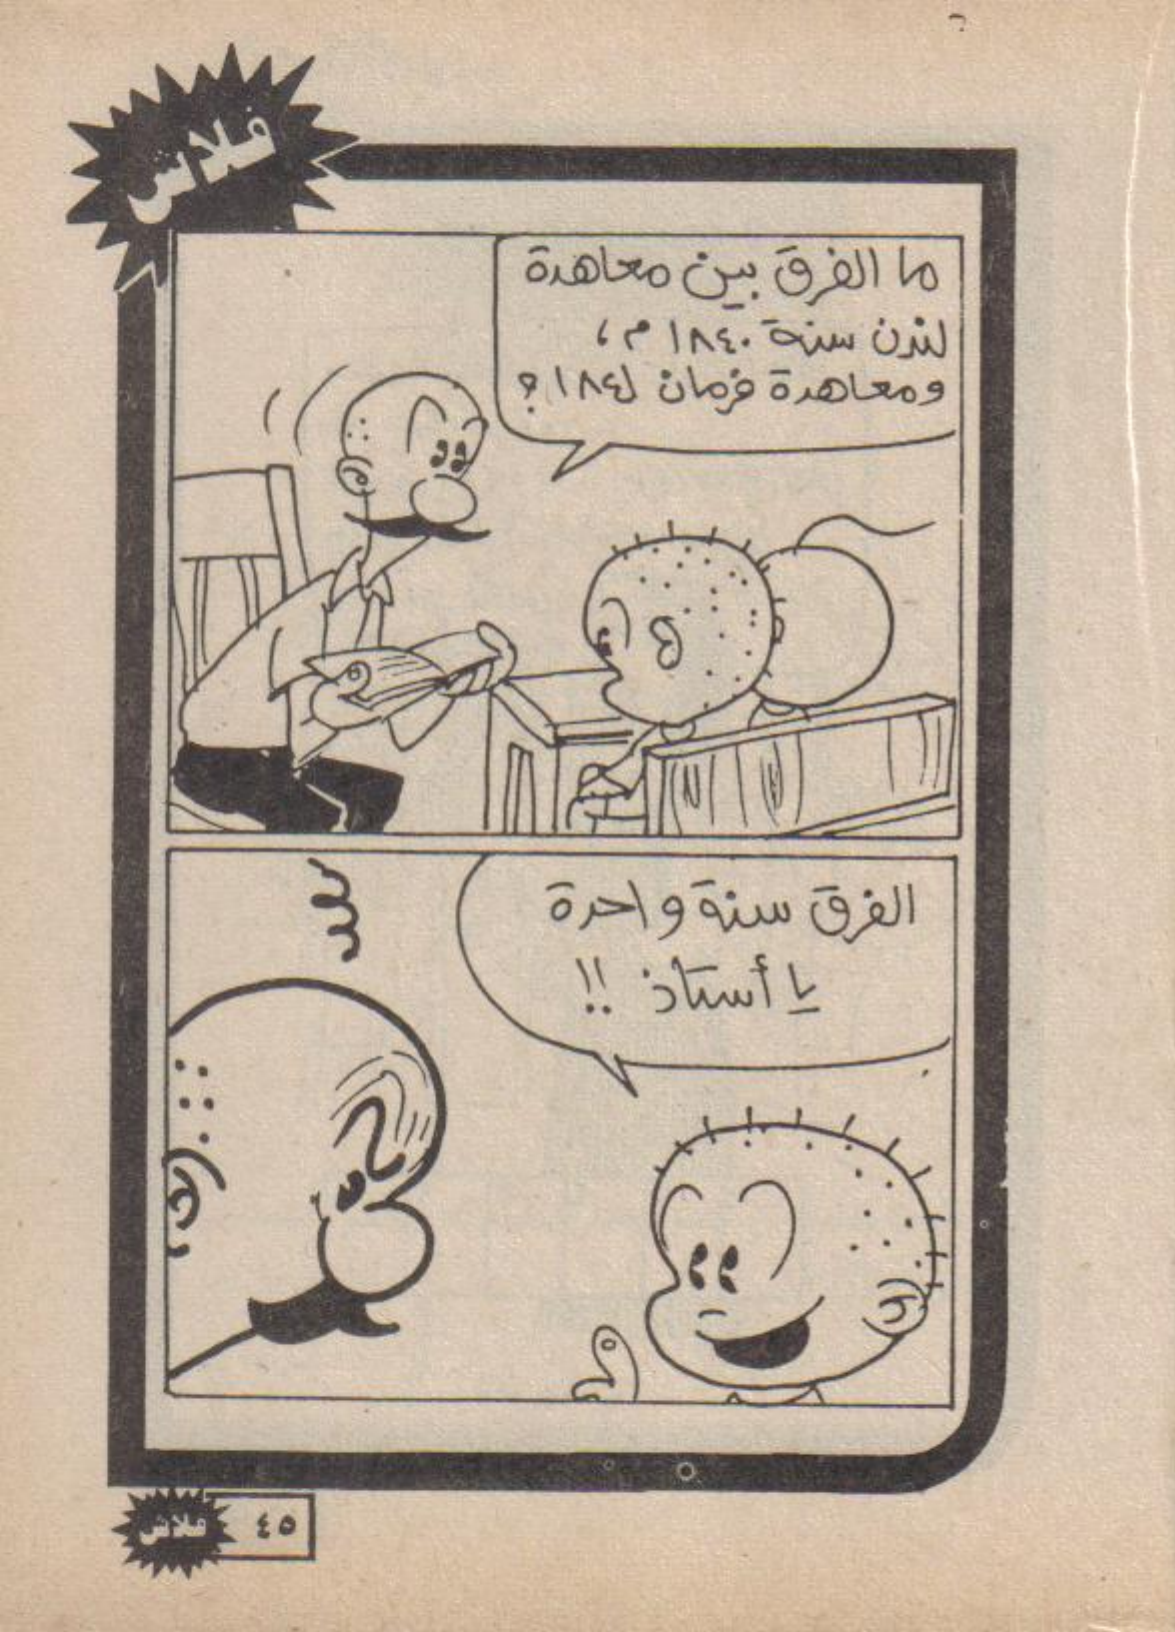 فلاش
ما الفرق بين معاهدة
لندن سنة ١٨٤٠ م،
ومعاهدة فرمان ١٨٤١؟
الفرق سنة واحدة
يا أستاذ !!
٤٥ فلاش